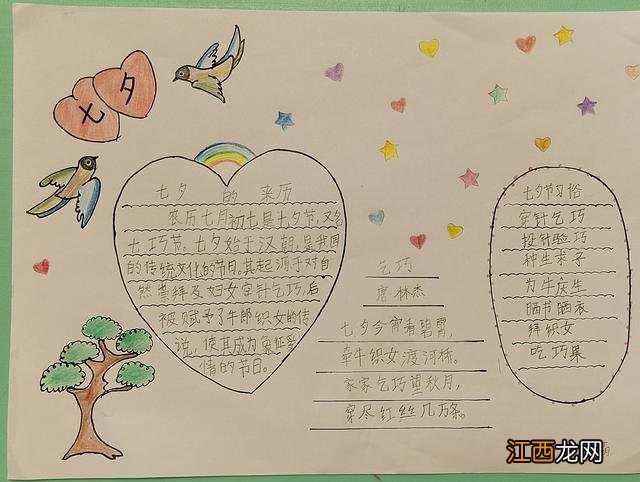 七夕
七夕 的 来历
农历七月初七是七夕节,又名
七巧节。七夕始于汉朝,是我国
的传统文化的节日。其起源于对自
然崇拜及妇女穿针乞巧,后
被赋予了牛郎织女的传
说,使其成为象征爱
情的节日。
乞巧
唐 林杰
七夕今宵看碧霄,
牵牛织女渡河桥。
家家乞巧望秋月,
穿尽红丝几万条。
七夕节习俗
穿针乞巧
投针验巧
种生求子
为牛庆生
晒书晒衣
拜织女
吃巧果
江西龙网